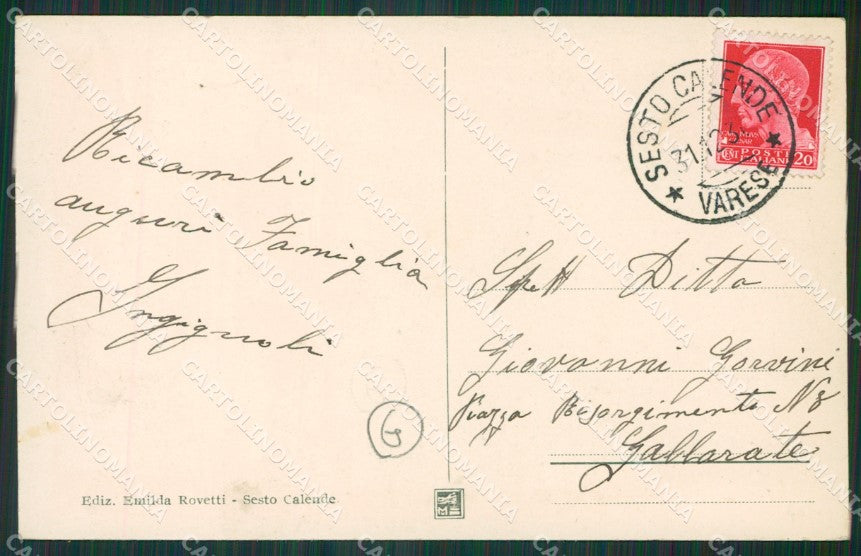 Ricambio
auguri Famiglia
Ingignoli
Ediz. Emilda Rovetti - Sesto Calende
SESTO CALENDE
VARESE
POSTE
ITALIANE
CENT 20
Spett Ditta
Giovanni Gorvini
Piazza Risorgimento N 8
Gallarate
G
CARTOLINOMANIA